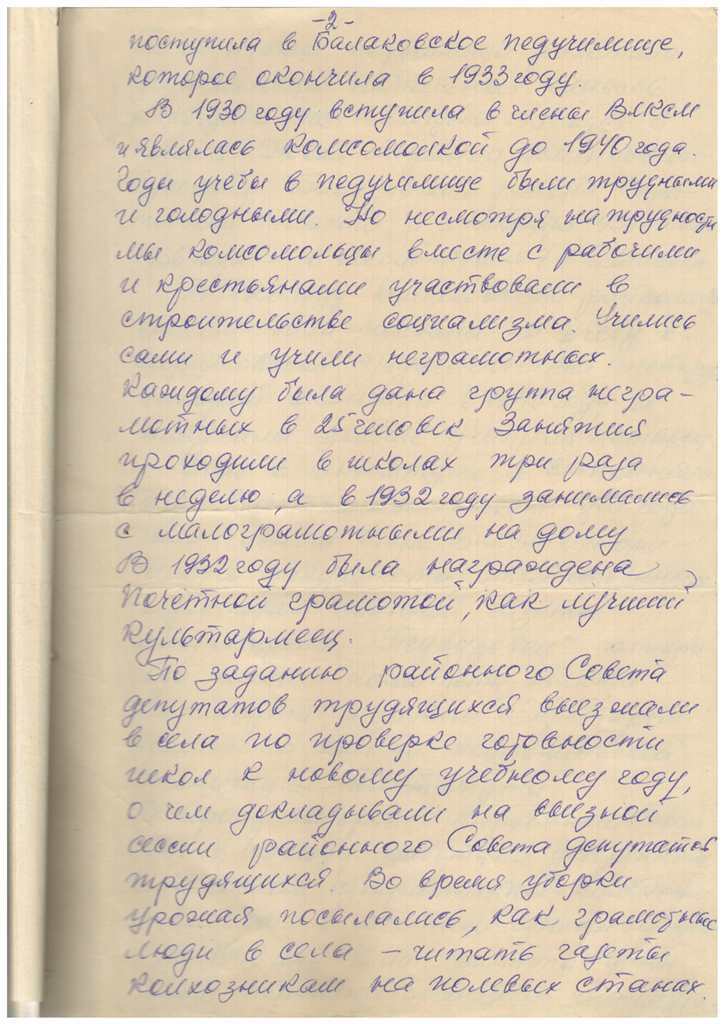 -2-
поступила в Балаковское педучилище,
которое окончила в 1933 году.
В 1930 году вступила в члены ВЛКСМ
и являлась комсомолкой до 1940 года.
Годы учебы в педучилище были трудными
и голодными. Но несмотря на трудности
мы комсомольцы вместе с рабочими
и крестьянами участвовали в
строительстве социализма. Учились
сами и учили неграмотных.
Каждому была дана группа негра-
мотных в 25 человек Занятия
проходили в школах три раза
в неделю, а в 1932 году занимались
с малограмотными на дому
В 1932 году была награждена
Почётной грамотой, как лучший
культармеец.
По заданию районного Совета
депутатов трудящихся выезжали
в села по проверке готовности
школ к новому учебному году,
о чем докладывали на выезной
сессии районного Совета депутатов
трудящихся. Во время уборки
урожая посылались, как грамотные
люди в села - читать газеты
колхозникам на полевых станах.